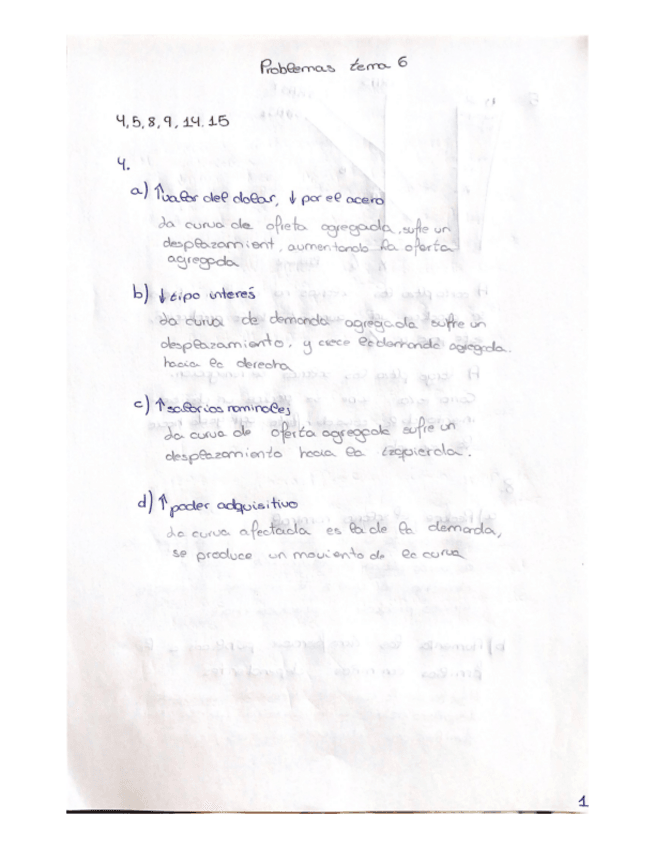 Problemas tema 6
4, 5, 8, 9, 14. 15
4.
a) ↑valor del dolar, ↓ por el acero
La curva de ofreta agregada, sufre un
desplazamient, aumentando la oferta
agregada
b) ↓ tipo interés
La curva de demanda agregada sufre un
desplazamiento, y crece la demanda agregada.
hacia la derecha
c) ↑ salarios nominales
La curva de oferta agregada sufre un
desplazamiento hacia la izquierda.
d) ↑ poder adquisitivo
La curva afectada es la de la demanda,
se produce un moviento de la curva
1